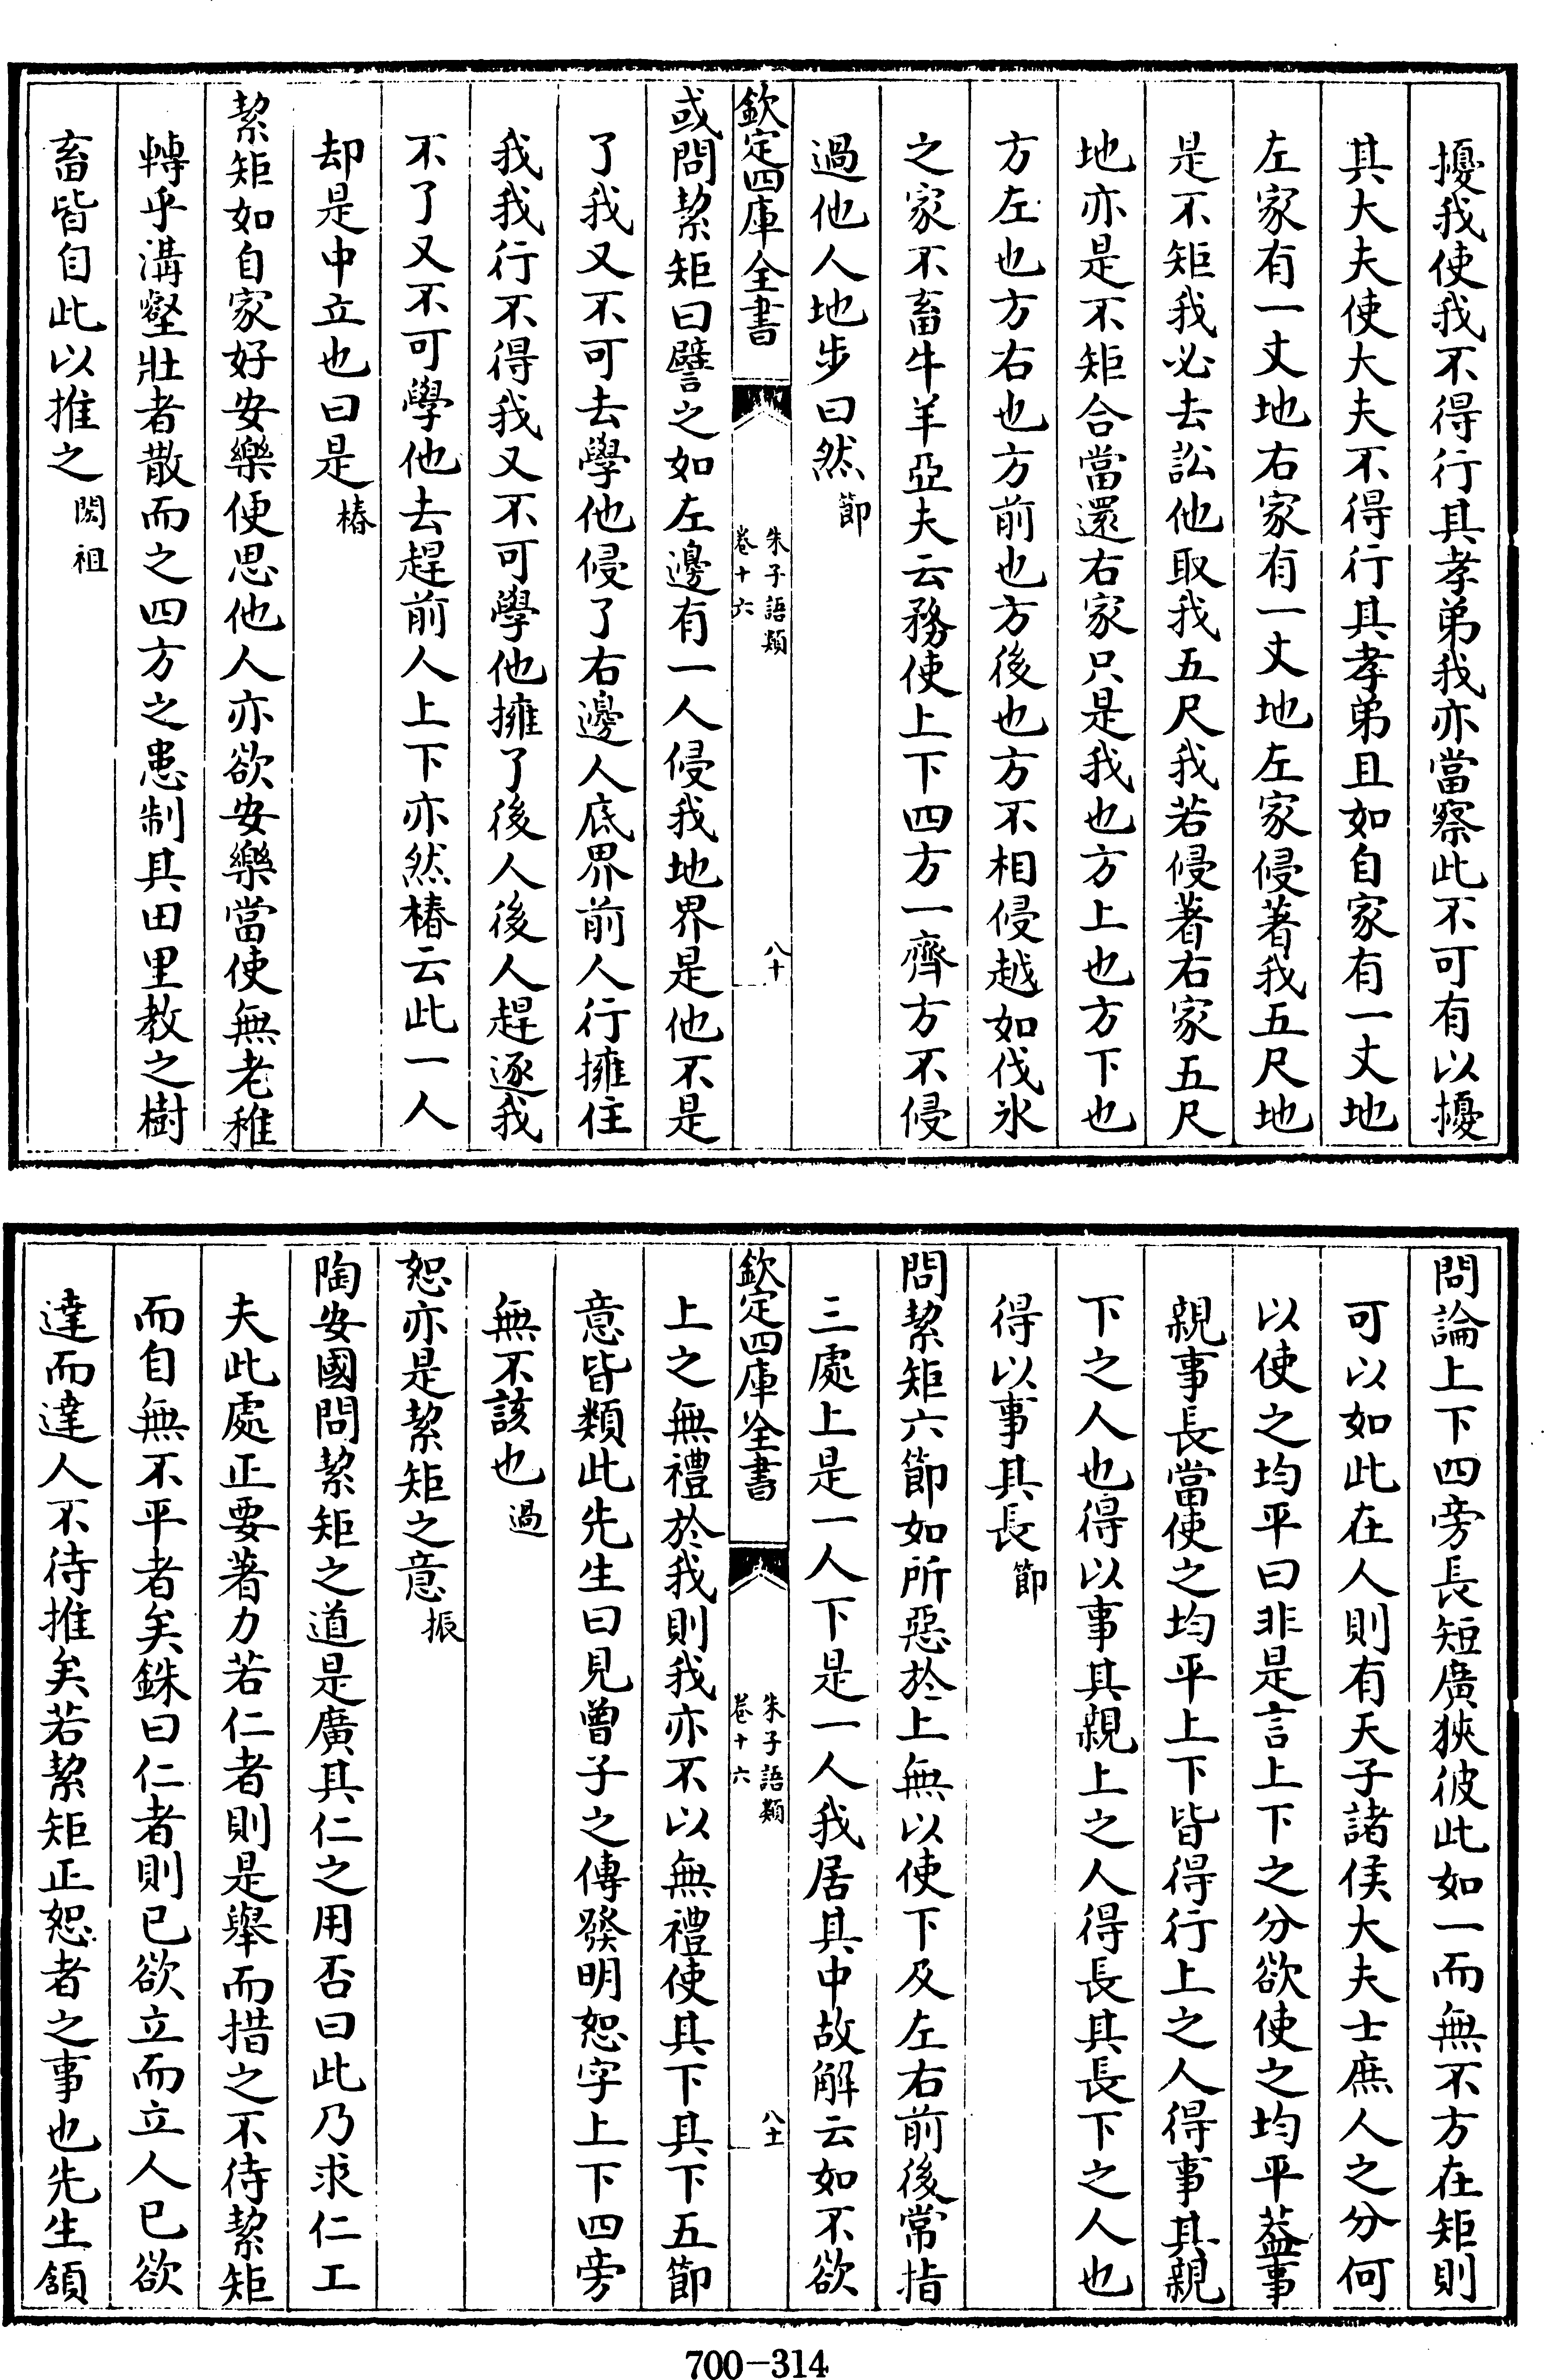 擾我使我不得行其孝弟我亦當察此不可有以擾
其大夫使大夫不得行其孝弟且如自家有一丈地
左家有一丈地右家有一丈地左家侵著我五尺地
是不矩我必去訟他取我五尺我若侵著右家五尺
地亦是不矩合當還右家只是我也方上也方下也
方左也方右也方前也方後也方不相侵越如伐氷
之家不畜牛羊亞夫云務使上下四方一齊方不侵
過他人地步曰然節
欽定四庫全書
朱子語類
卷十六
八十
或問絜矩曰譬之如左邊有一人侵我地界是他不是
了我又不可去學他侵了右邊人底界前人行擁住
我我行不得我又不可學他擁了後人後人趕逐我
不了又不可學他去趕前人上下亦然椿云此一人
却是中立也曰是椿
絜矩如自家好安樂便思他人亦欲安樂當使無老稚
轉乎溝壑壯者散而之四方之患制其田里教之樹
畜皆自此以推之閎祖
問論上下四旁長短廣狹彼此如一而無不方在矩則
可以如此在人則有天子諸侯大夫士庶人之分何
以使之均平曰非是言上下之分欲使之均平葢事
親事長當使之均平上下皆得行上之人得事其親
下之人也得以事其親上之人得長其長下之人也
得以事其長節
問絜矩六節如所惡於上無以使下及左右前後常指
三處上是一人下是一人我居其中故解云如不欲
欽定四庫全書
朱子語類
卷十六
八十一
上之無禮於我則我亦不以無禮使其下其下五節
意皆類此先生曰見曾子之傳發明恕字上下四旁
無不該也過
恕亦是絜矩之意振
陶安國問絜矩之道是廣其仁之用否曰此乃求仁工
夫此處正要著力若仁者則是舉而措之不待絜矩
而自無不平者矣銖曰仁者則已欲立而立人已欲
達而達人不待推矣若絜矩正恕者之事也先生頷
700-314